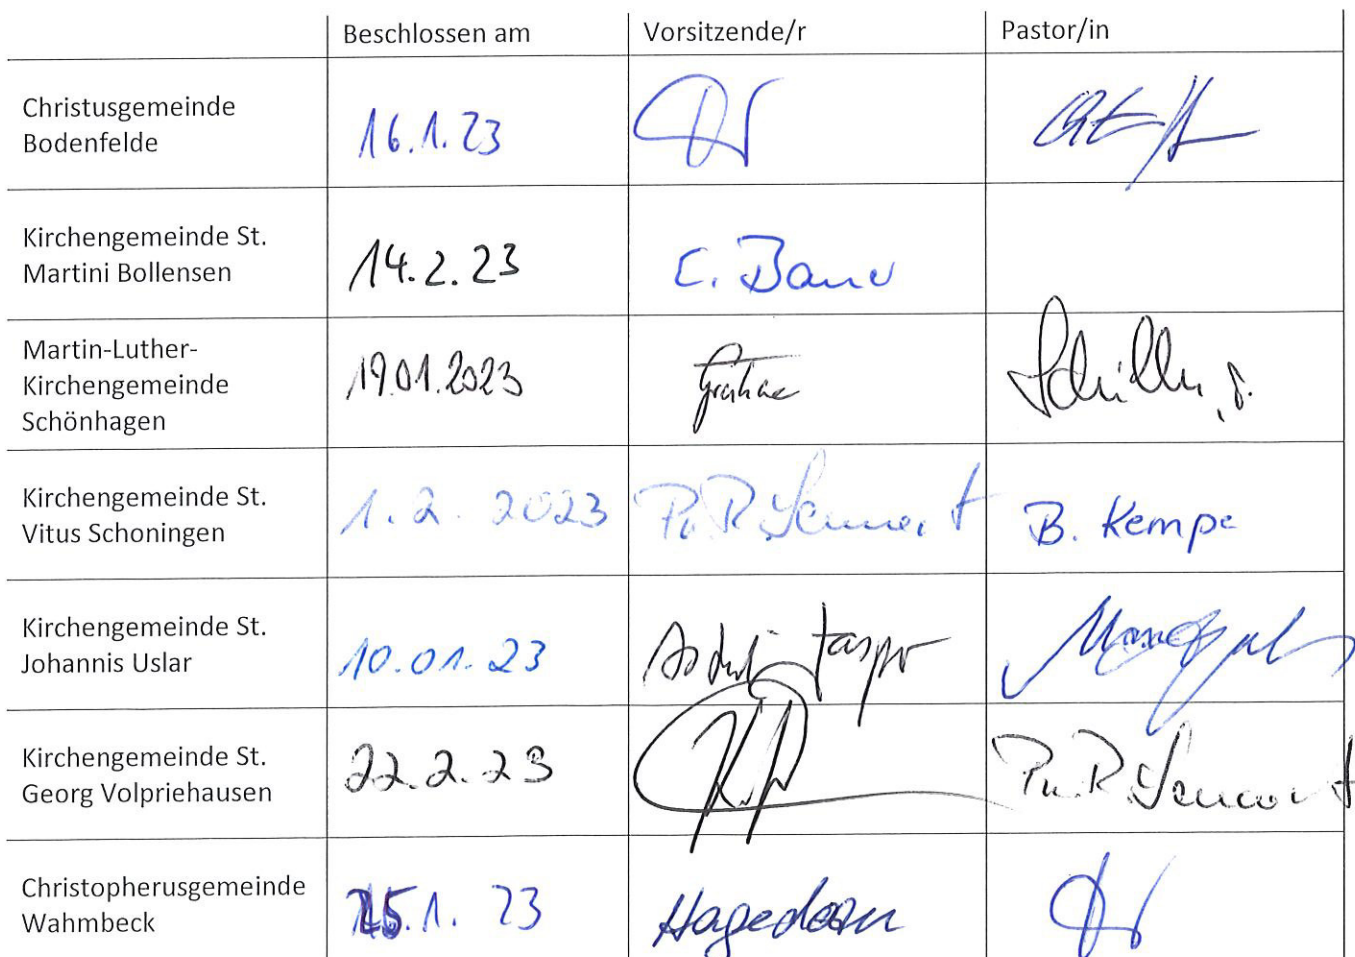 Beschlossen am Vorsitzende/r Pastor/in
Christusgemeinde
Bodenfelde
16.1.23
Kirchengemeinde St.
Martini Bollensen
14.2.23
Martin-Luther-
Kirchengemeinde
Schönhagen
19.01.2023
Kirchengemeinde St.
Vitus Schoningen
1.2.2023 B. Kempe
Kirchengemeinde St.
Johannis Uslar
10.01.23
Kirchengemeinde St.
Georg Volpriehausen
22.2.23
Christopherusgemeinde
Wahmbeck
Hagedorn